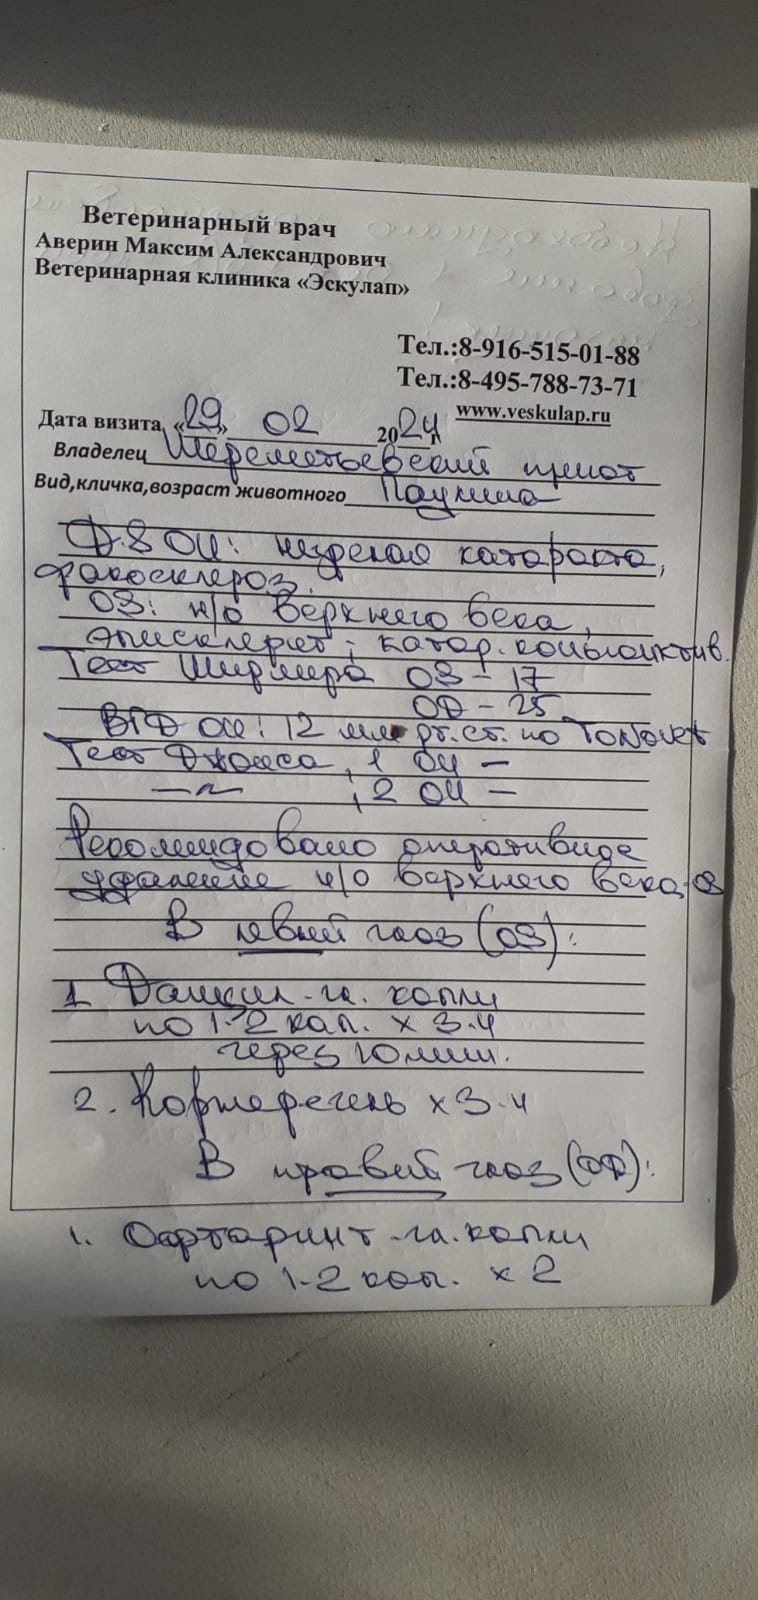 Ветеринарный врач
Аверин Максим Александрович
Ветеринарная клиника «Эскулап»
Тел.:8-916-515-01-88
Тел.:8-495-788-73-71
www.veskulap.ru
Дата визита «29» 02 2024 г
Владелец Шереметьевский приют
Вид,кличка,возраст животного Паулина
D.S OU: незрелая катаракта,
факосклероз.
OS: н/о верхнего века,
эписклерит, катар. конъюнктив.
Тест Ширмера OS - 17
OD - 25
ВГД OU: 12 мм рт.ст. по TonoVet
Тест Джонса, 1 OU -
—〃— , 2 OU -
Рекомендовано оперативное
удаление н/о верхнего века OS
В левый глаз (OS):
1. Данцил - гл. капли
по 1-2 кап. x 3-4
через 10 мин.
2. Корнерегель x 3-4
В правый глаз (OD):
1. - гл. капли
по 1-2 кап. x 2